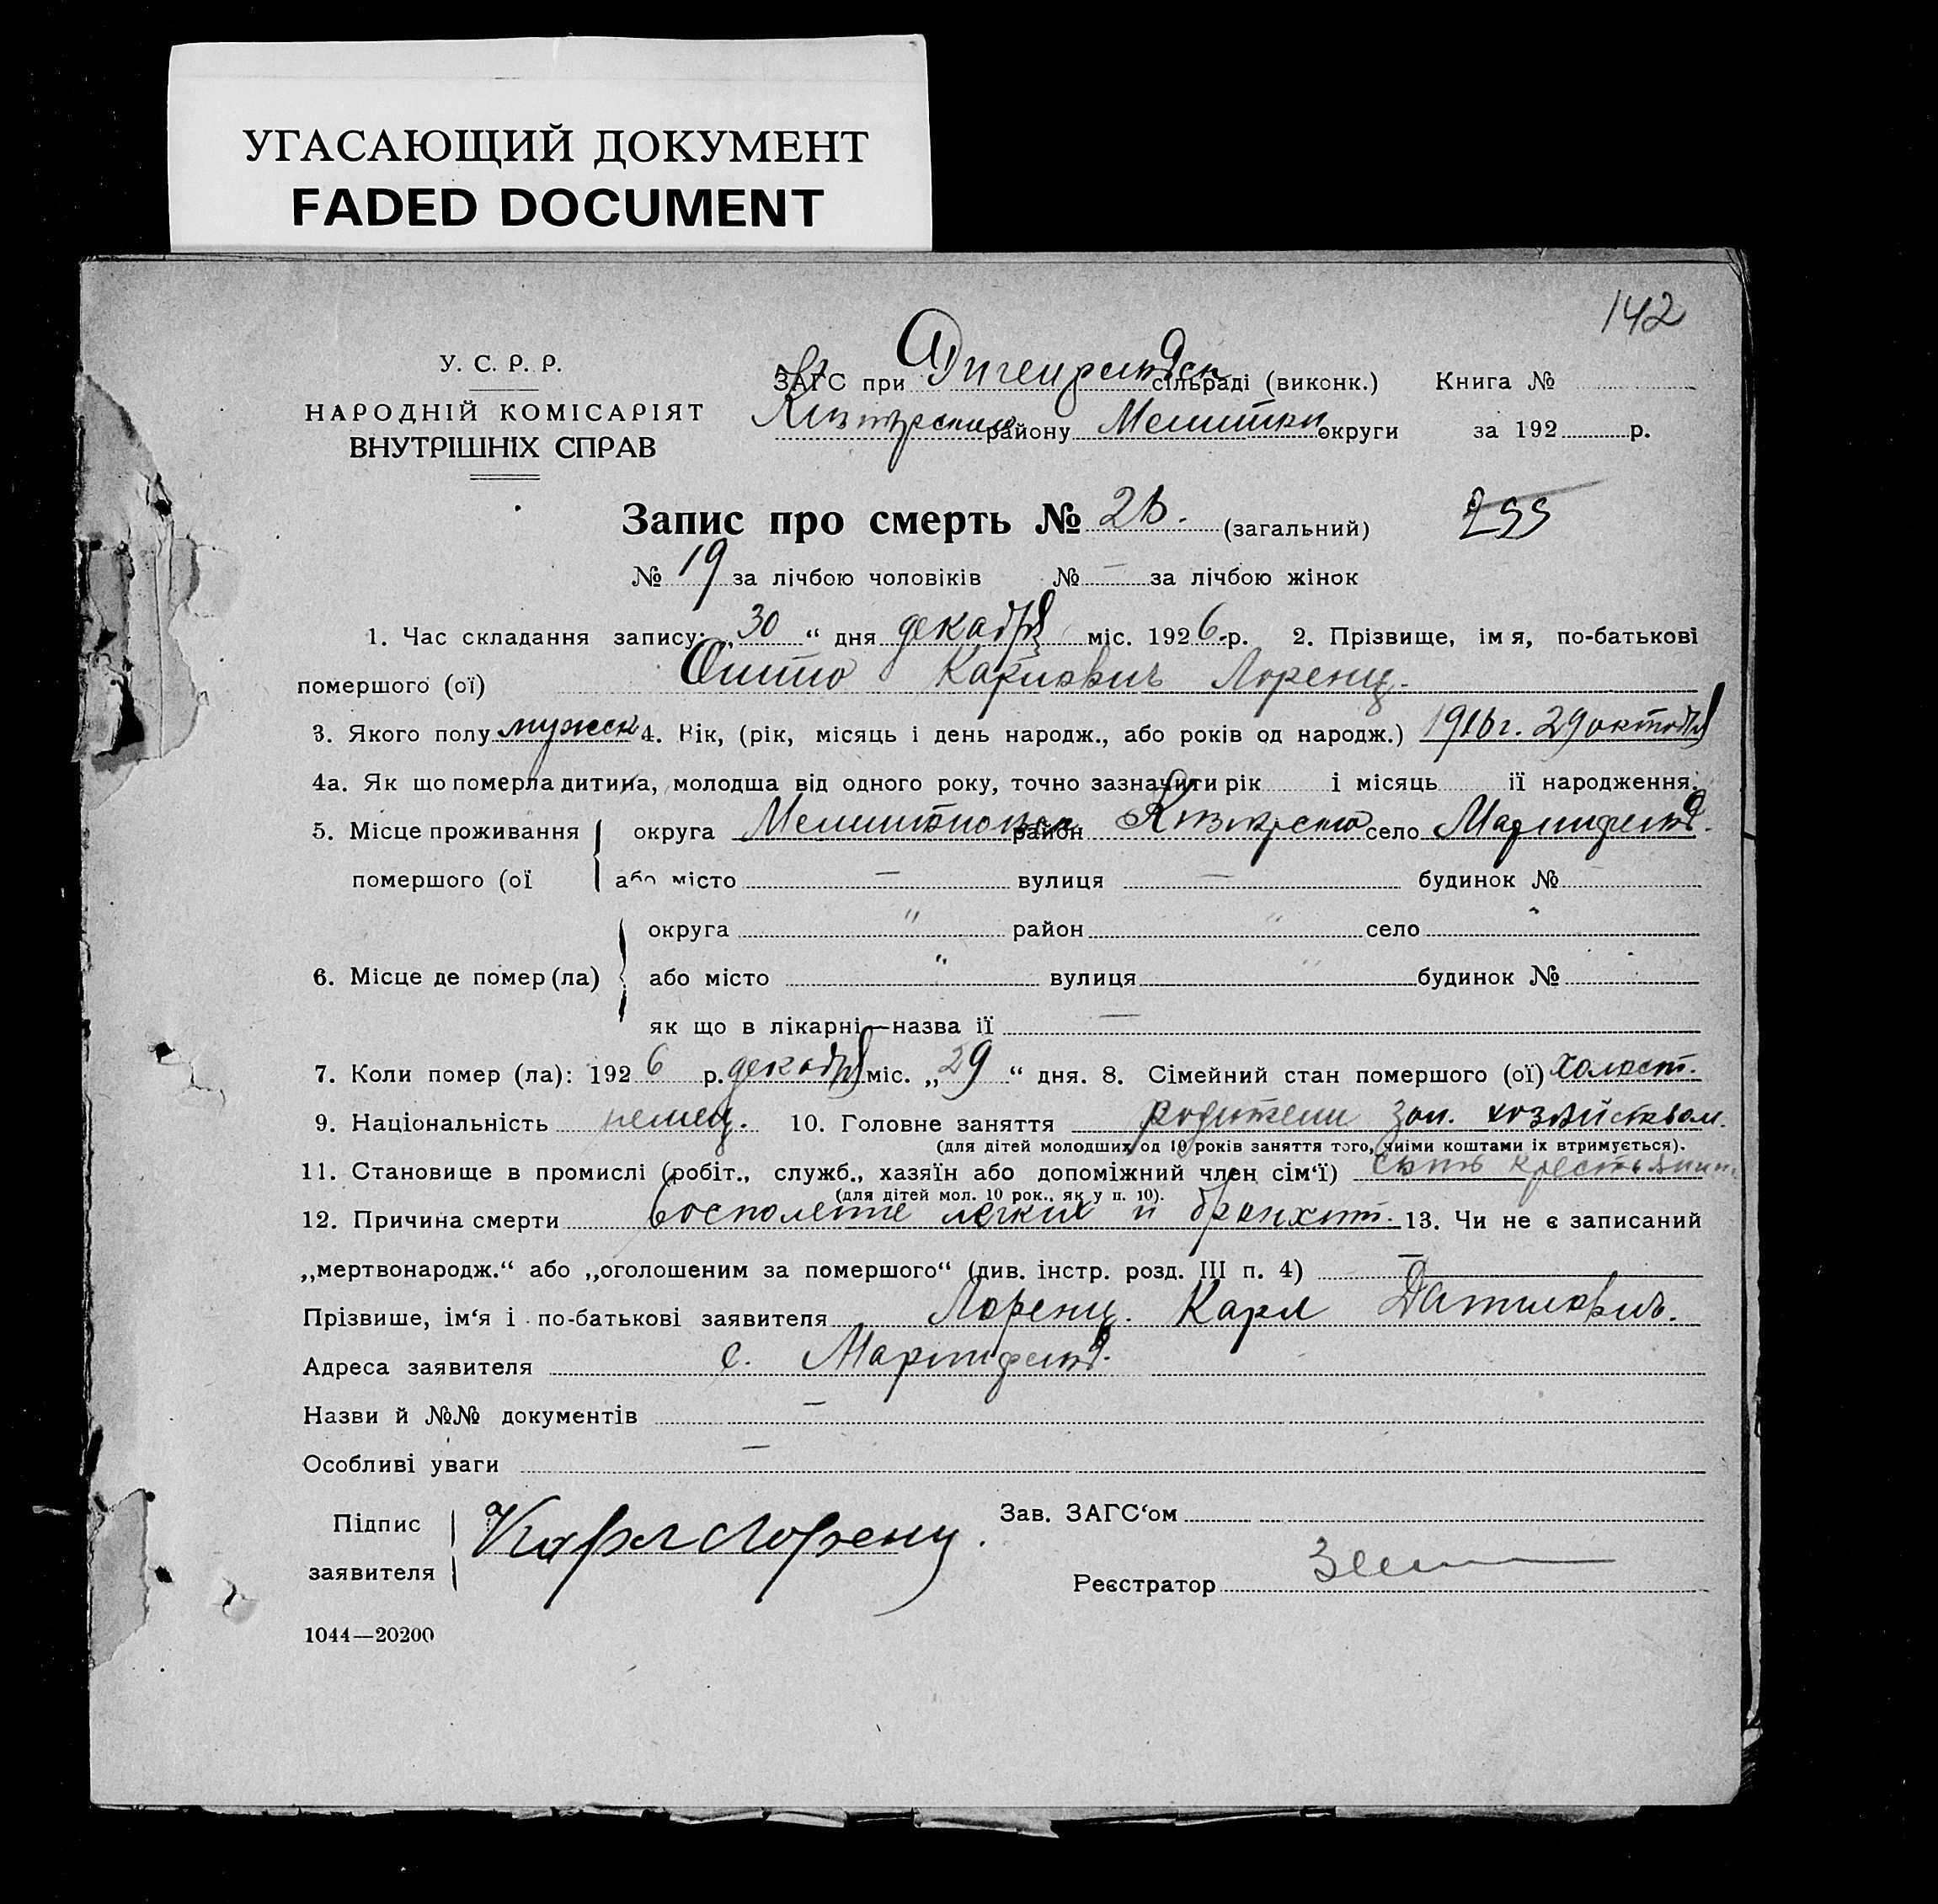 УГАСАЮЩИЙ ДОКУМЕНТ
FADED DOCUMENT
142
У. С. Р. Р.
НАРОДНІЙ КОМІСАРІЯТ
ВНУТРІШНІХ СПРАВ
ЗАГС при сільраді (виконк.) Книга №
району округи за 192 р.
Запис про смерть № 26. (загальний)
№ 19 за лічбою чоловіків № — за лічбою жінок
1. Час складання запису: „ 30 “ дня декабря міс. 1926 р. 2. Прізвище, імя, по-батькові
помершого (ої) Отто Карлович Лоренц.
3. Якого полу мужск 4. Вік, (рік, місяць і день народж., або років од народж.) 1916 г. 29 октября
4а. Як що померла дитина, молодша від одного року, точно зазначити рік і місяць її народження.
5. Місце проживання округа район село
помершого (ої або місто — вулиця — будинок № —
округа " район " село "
6. Місце де помер (ла) або місто " вулиця " будинок № "
як що в лікарні—назва її —
7. Коли помер (ла): 1926 р. декабря міс. „ 29 “ дня. 8. Сімейний стан помершого (ої) холост.
9. Національність немец. 10. Головне заняття родители зан. хозяйством.
(для дітей молодших од 10 років заняття того, чиїми коштами їх втримується).
11. Становище в промислі (робіт., служб., хазяїн або допоміжний член сім‘ї) сын крестьянин.
(для дітей мол. 10 рок., як у п. 10).
12. Причина смерти восполение легких и бронхит. 13. Чи не є записаний
„мертвонародж.“ або „оголошеним за помершого“ (див. інстр. розд. III п. 4) —
Прізвише, ім‘я і по-батькові заявителя Лоренц. Карл
Адреса заявителя с. Мартифельд.
Назви й №№ документів —
Особливі уваги —
Підпис
заявителя Карл Лоренц.
Зав. ЗАГС‘ом
Реєстратор
1044—20200